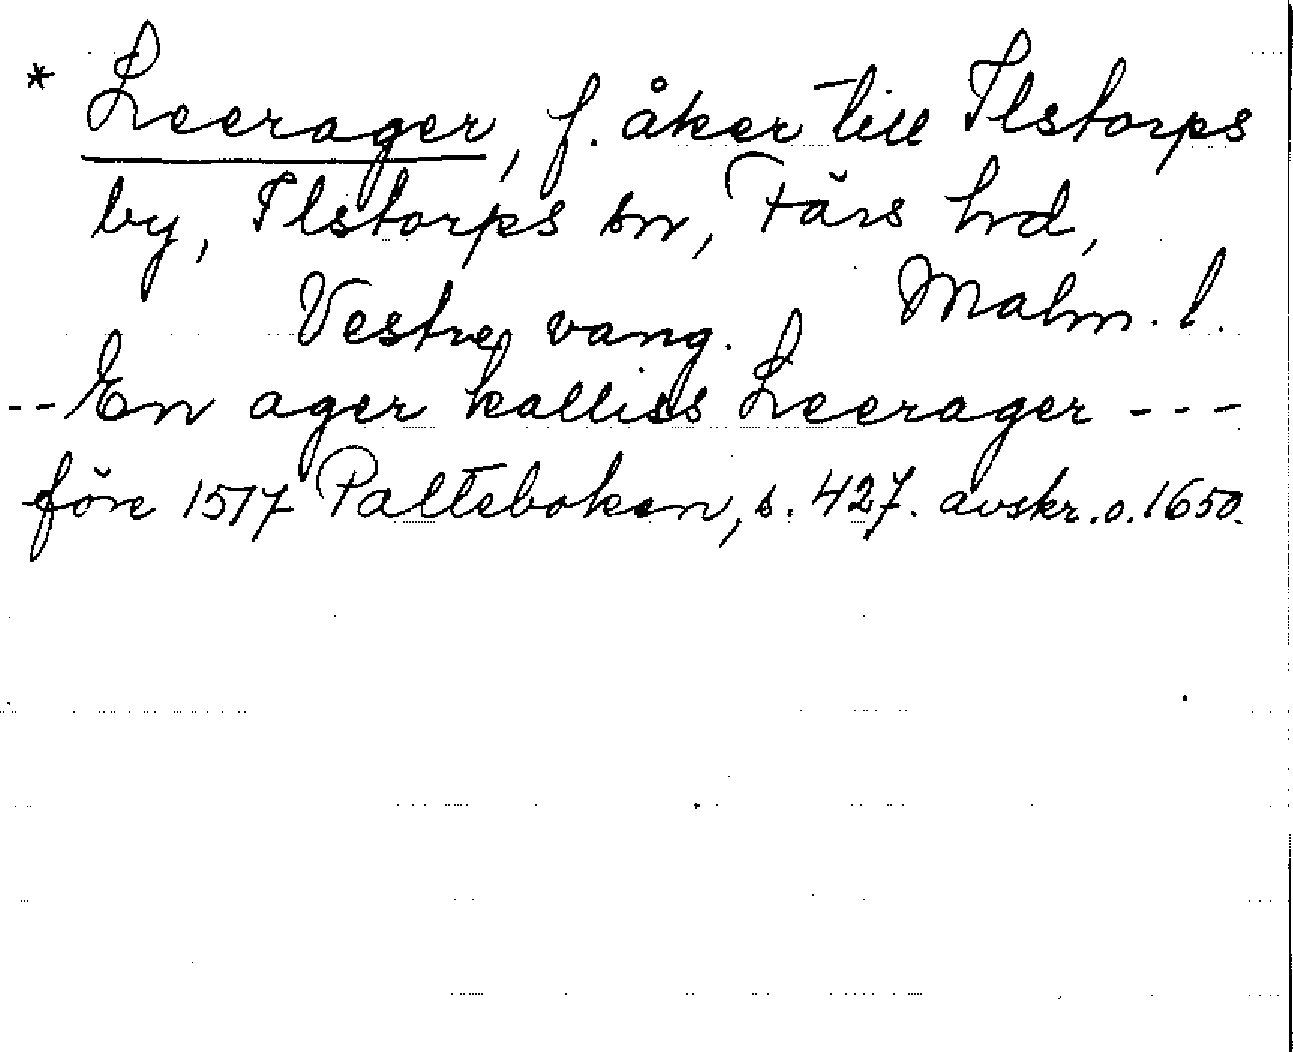 * Leerager, f. åker till Ilstorps
by, Ilstorps sn, Färs hd,
Vestre vang. Malm. l.
-- En ager kalliss Leerager ---
före 1517 Palteboken, s. 427. avskr. o. 1650.